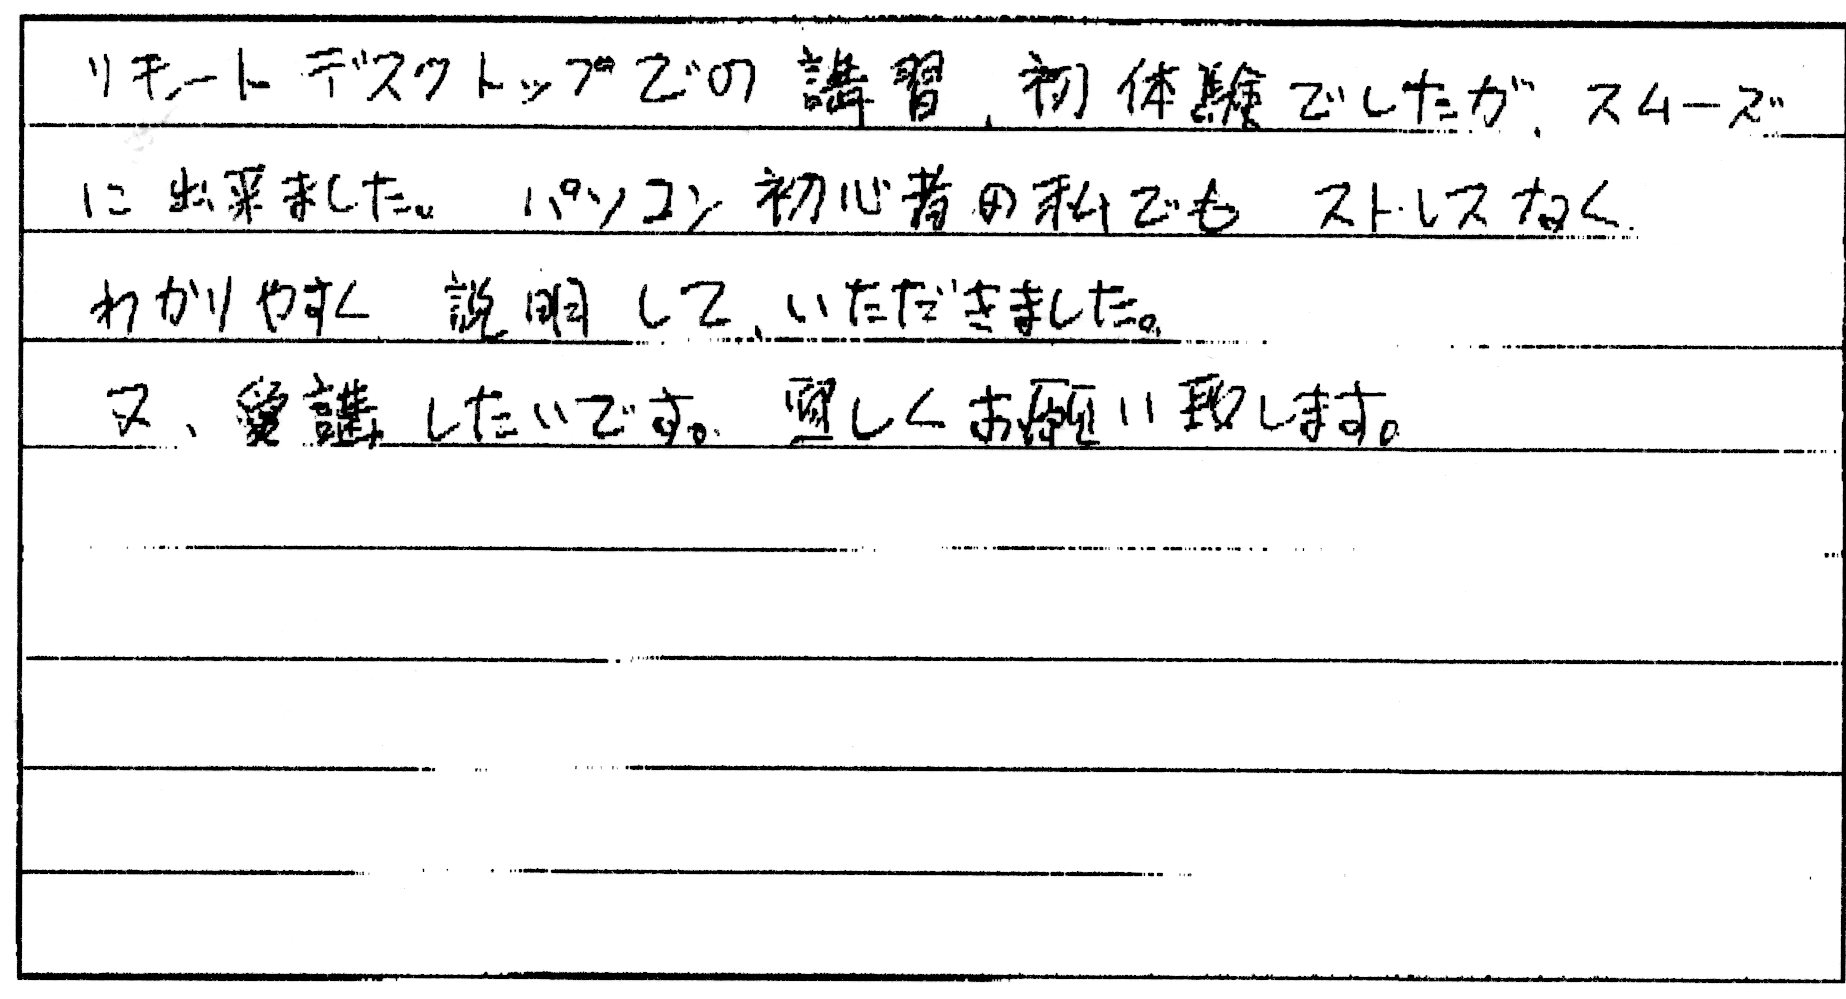 リモートデスクトップでの講習、初体験でしたが、スムーズ
に出来ました。パソコン初心者の私でも ストレスなく
わかりやすく 説明して、いただきました。
又、受講したいです。宜しくお願い致します。